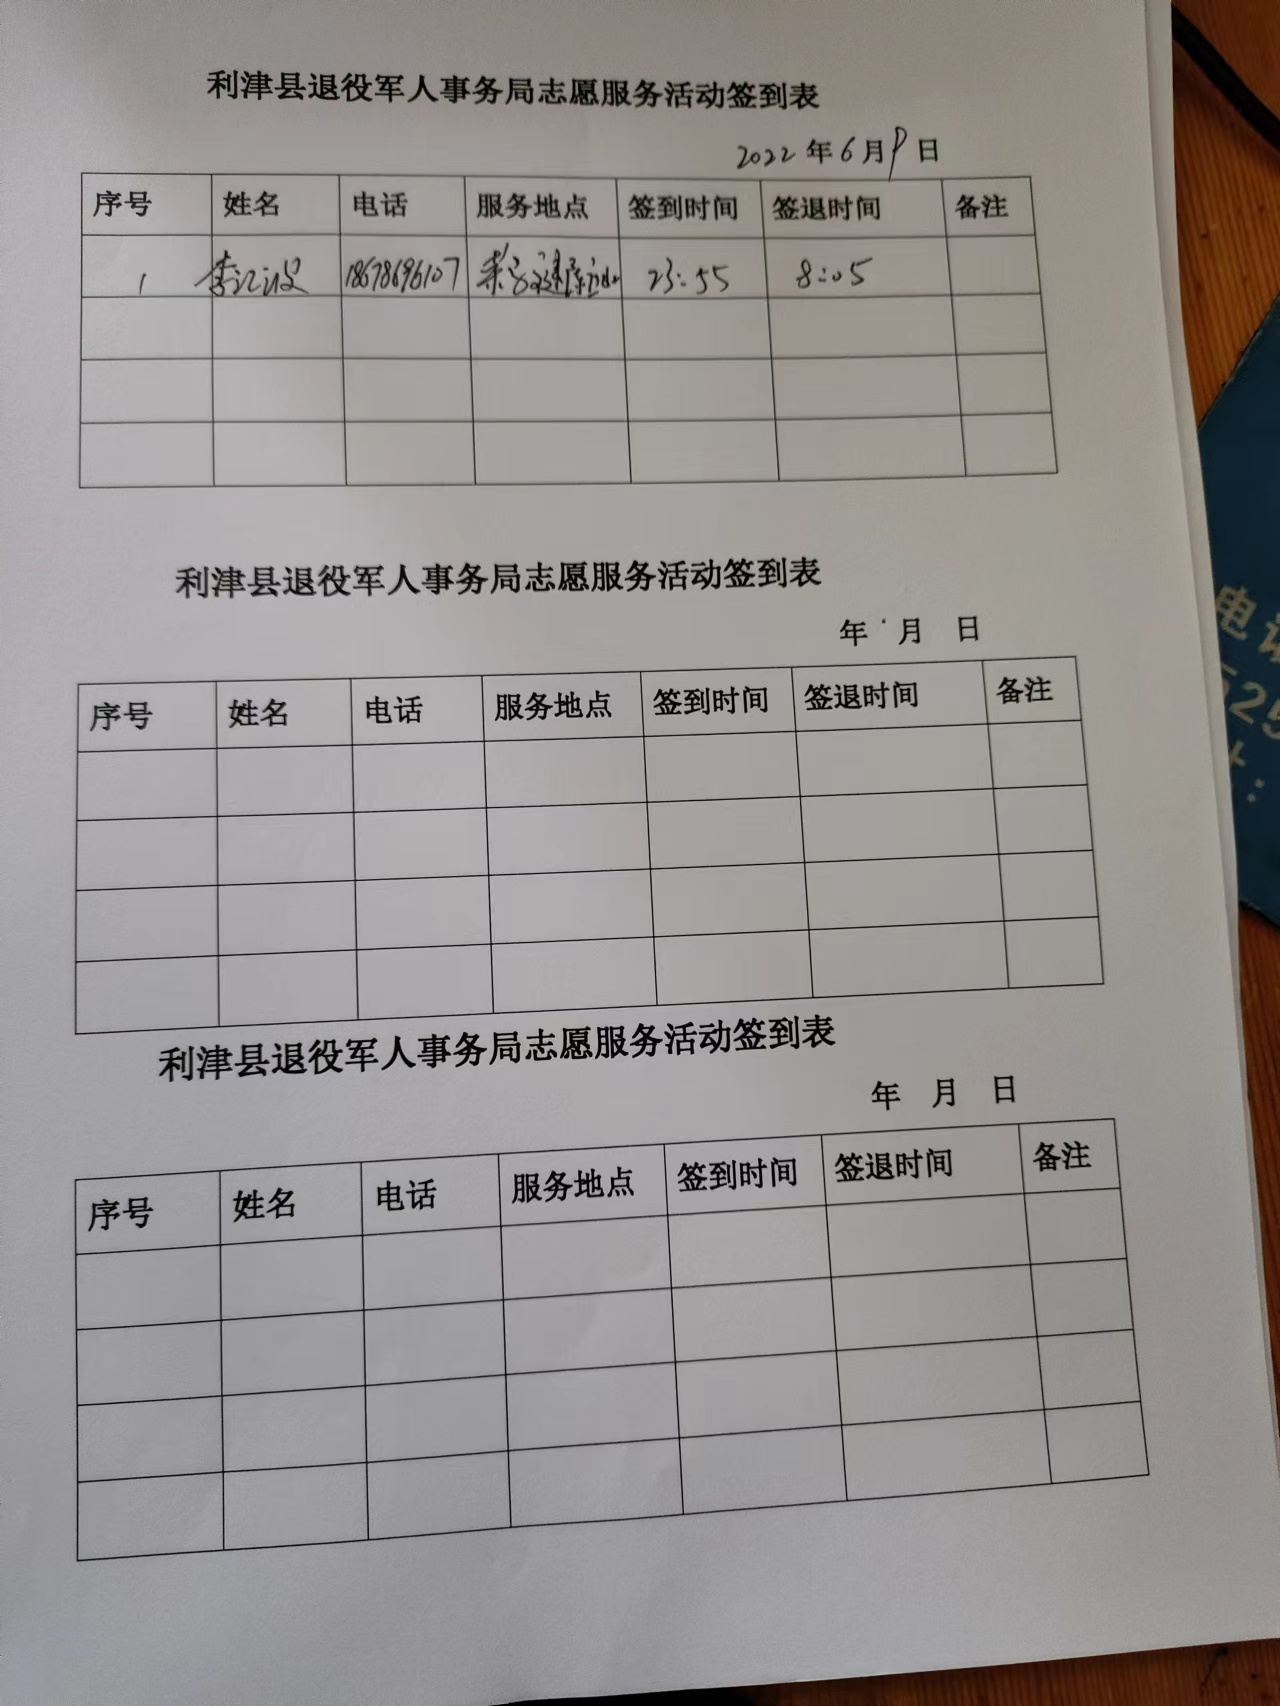 利津县退役军人事务局志愿服务活动签到表
2022年6月9日
序号 姓名 电话 服务地点 签到时间 签退时间 备注
1 李江波 18678696107 23:55 8:05
利津县退役军人事务局志愿服务活动签到表
年 月 日
序号 姓名 电话 服务地点 签到时间 签退时间 备注
利津县退役军人事务局志愿服务活动签到表
年 月 日
序号 姓名 电话 服务地点 签到时间 签退时间 备注
电话
525